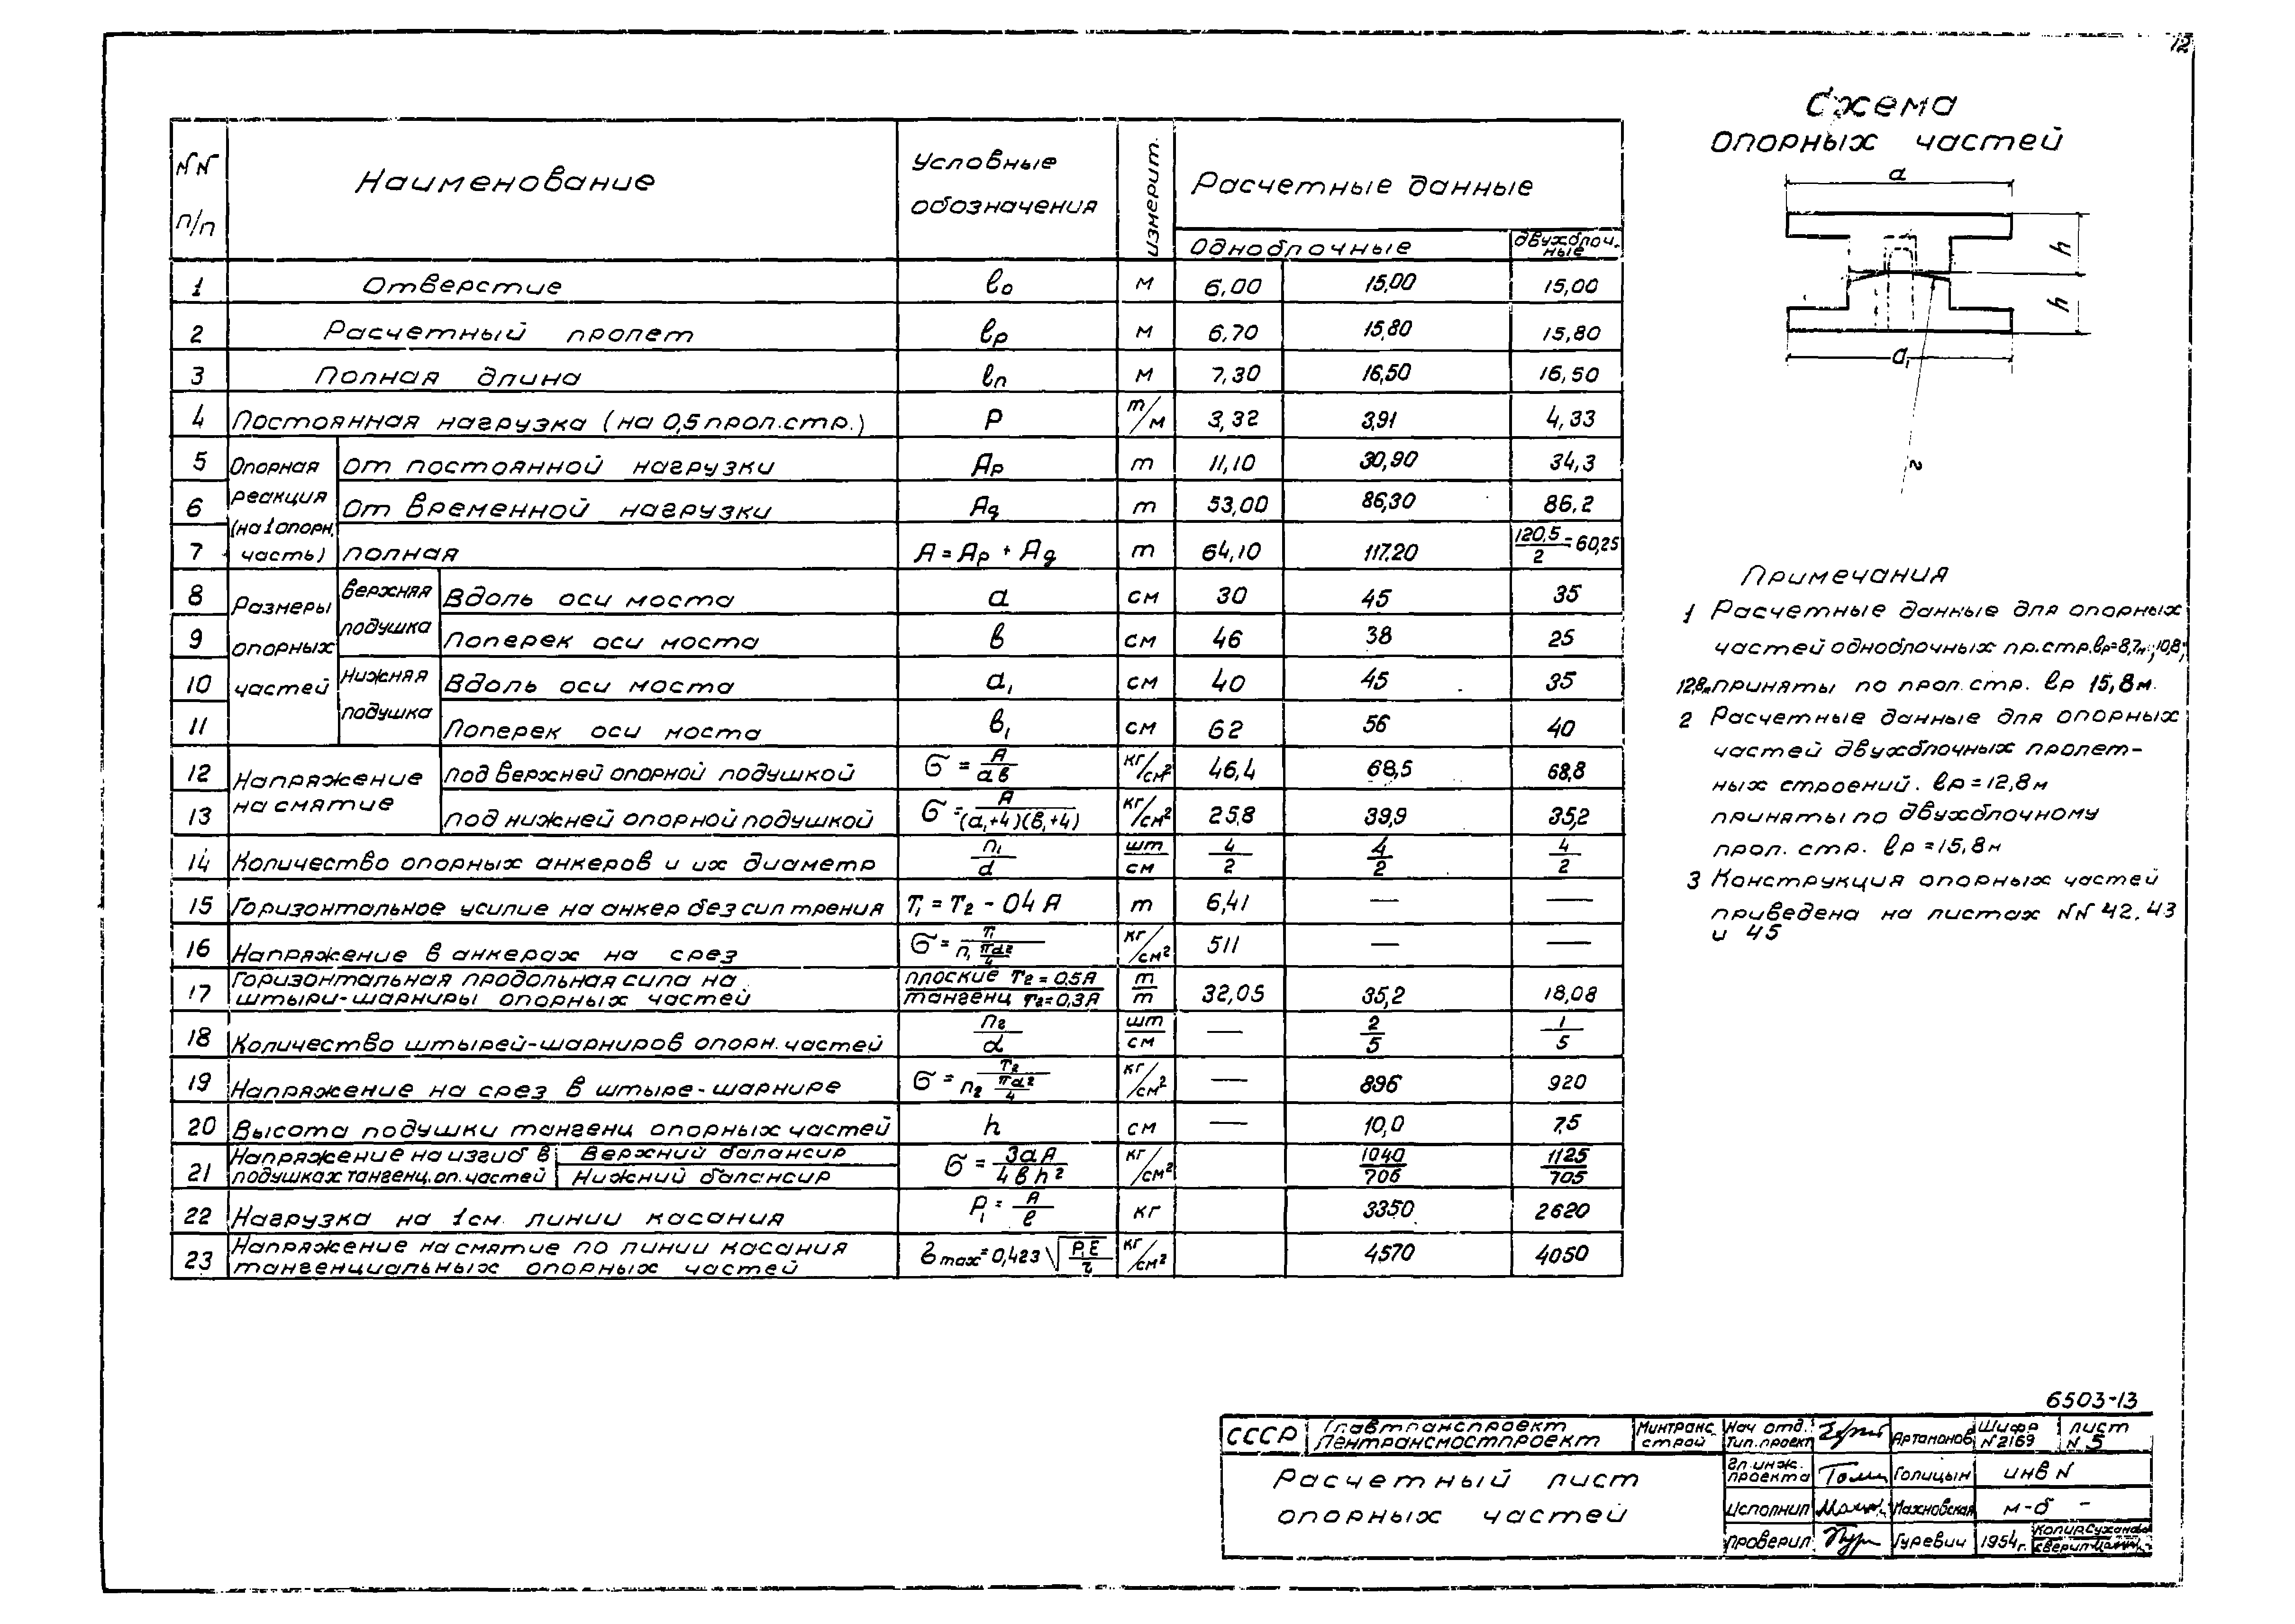 12
NN п/п | Наименование | Условные обозначения | Измерит. | Расчетные данные
Одноблочные | двухблоч-ные
1 | Отверстие | l₀ | м | 6,00 | 15,00 | 15,00
2 | Расчетный пролет | lр | м | 6,70 | 15,80 | 15,80
3 | Полная длина | lп | м | 7,30 | 16,50 | 16,50
4 | Постоянная нагрузка (на 0,5 проп.стр.) | P | т/м | 3,32 | 3,91 | 4,33
Опорная реакция (на 1 опорн. часть)
5 | от постоянной нагрузки | Aр | т | 11,10 | 30,90 | 34,3
6 | от временной нагрузки | Aq | т | 53,00 | 86,30 | 86,2
7 | полная | A = Aр + Aq | т | 64,10 | 117,20 | 120,5/2 = 60,25
Размеры опорных частей
верхняя подушка
8 | Вдоль оси моста | a | см | 30 | 45 | 35
9 | Поперек оси моста | в | см | 46 | 38 | 25
Нижняя подушка
10 | Вдоль оси моста | a₁ | см | 40 | 45 | 35
11 | Поперек оси моста | в₁ | см | 62 | 56 | 40
Напряжение на смятие
12 | под верхней опорной подушкой | σ = A/aв | кг/см² | 46,4 | 68,5 | 68,8
13 | под нижней опорной подушкой | σ = A/(a₁+4)(в₁+4) | кг/см² | 25,8 | 39,9 | 35,2
14 | Количество опорных анкеров и их диаметр | n₁/d | шт/см | 4/2 | 4/2 | 4/2
15 | Горизонтальное усилие на анкер без сил трения | T₁ = T₂ - 04 A | т | 6,41 | — | —
16 | Напряжение в анкерах на срез | σ = T₁/n₁ πd²/4 | кг/см² | 511 | — | —
17 | Горизонтальная продольная сила на штыри-шарниры опорных частей | плоские T₂ = 0.5A / тангенц T₂ = 0,3A | т/т | 32,05 | 35,2 | 18,08
18 | Количество штырей-шарниров опорн. частей | n₂/d | шт/см | — | 2/5 | 1/5
19 | Напряжение на срез в штыре-шарнире | σ = T₂/n₂ πd²/4 | кг/см² | — | 896 | 920
20 | Высота подушки тангенц опорных частей | h | см | — | 10,0 | 7,5
21 | Напряжение на изгиб в подушках тангенц. оп. частей | Верхний балансир / Нижний балансир | σ = 3aA/4вh² | кг/см² | 1040/706 | 1125/705
22 | Нагрузка на 1 см. линии касания | P₁ = A/l | кг | 3350 | 2620
23 | Напряжение на смятие по линии касания тангенциальных опорных частей | σmax = 0,423 √P₁E/r | кг/см² | 4570 | 4050
Схема
опорных частей
a
h
h
a₁
r
Примечания
1 Расчетные данные для опорных
частей одноблочных пр.стр. lр=8,7м; 10,8;
12,8м приняты по проп. стр. lр 15,8м.
2 Расчетные данные для опорных
частей двухблочных пролет-
ных строений. lр = 12,8м
приняты по двухблочному
проп. стр. lр = 15,8м
3 Конструкция опорных частей
приведена на листах NN 42, 43
и 45
6503-13
СССР | Главтранспроект Лентрансмостпроект | Минтрансстрой | Нач отд. Тип.проект | Артамонов | Шифр N2169 | лист N 5
Расчетный лист
опорных частей
Гл.инж. проекта | Голицын | инв N
Исполнил | Махновская | м-б -
Проверил | Гуревич | 1954г. | Копир Суханова
Сверил